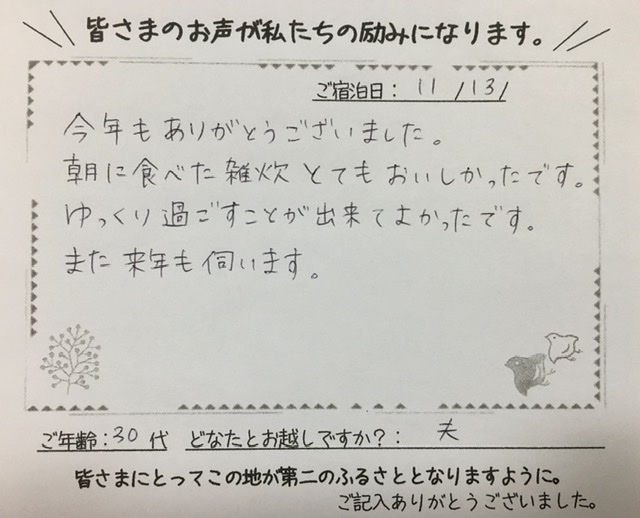 皆さまのお声が私たちの励みになります。
ご宿泊日：11/13/
今年もありがとうございました。
朝に食べた雑炊とてもおいしかったです。
ゆっくり過ごすことが出来てよかったです。
また来年も伺います。
ご年齢：30代 どなたとお越しですか？：夫
皆さまにとってこの地が第二のふるさととなりますように。
ご記入ありがとうございました。